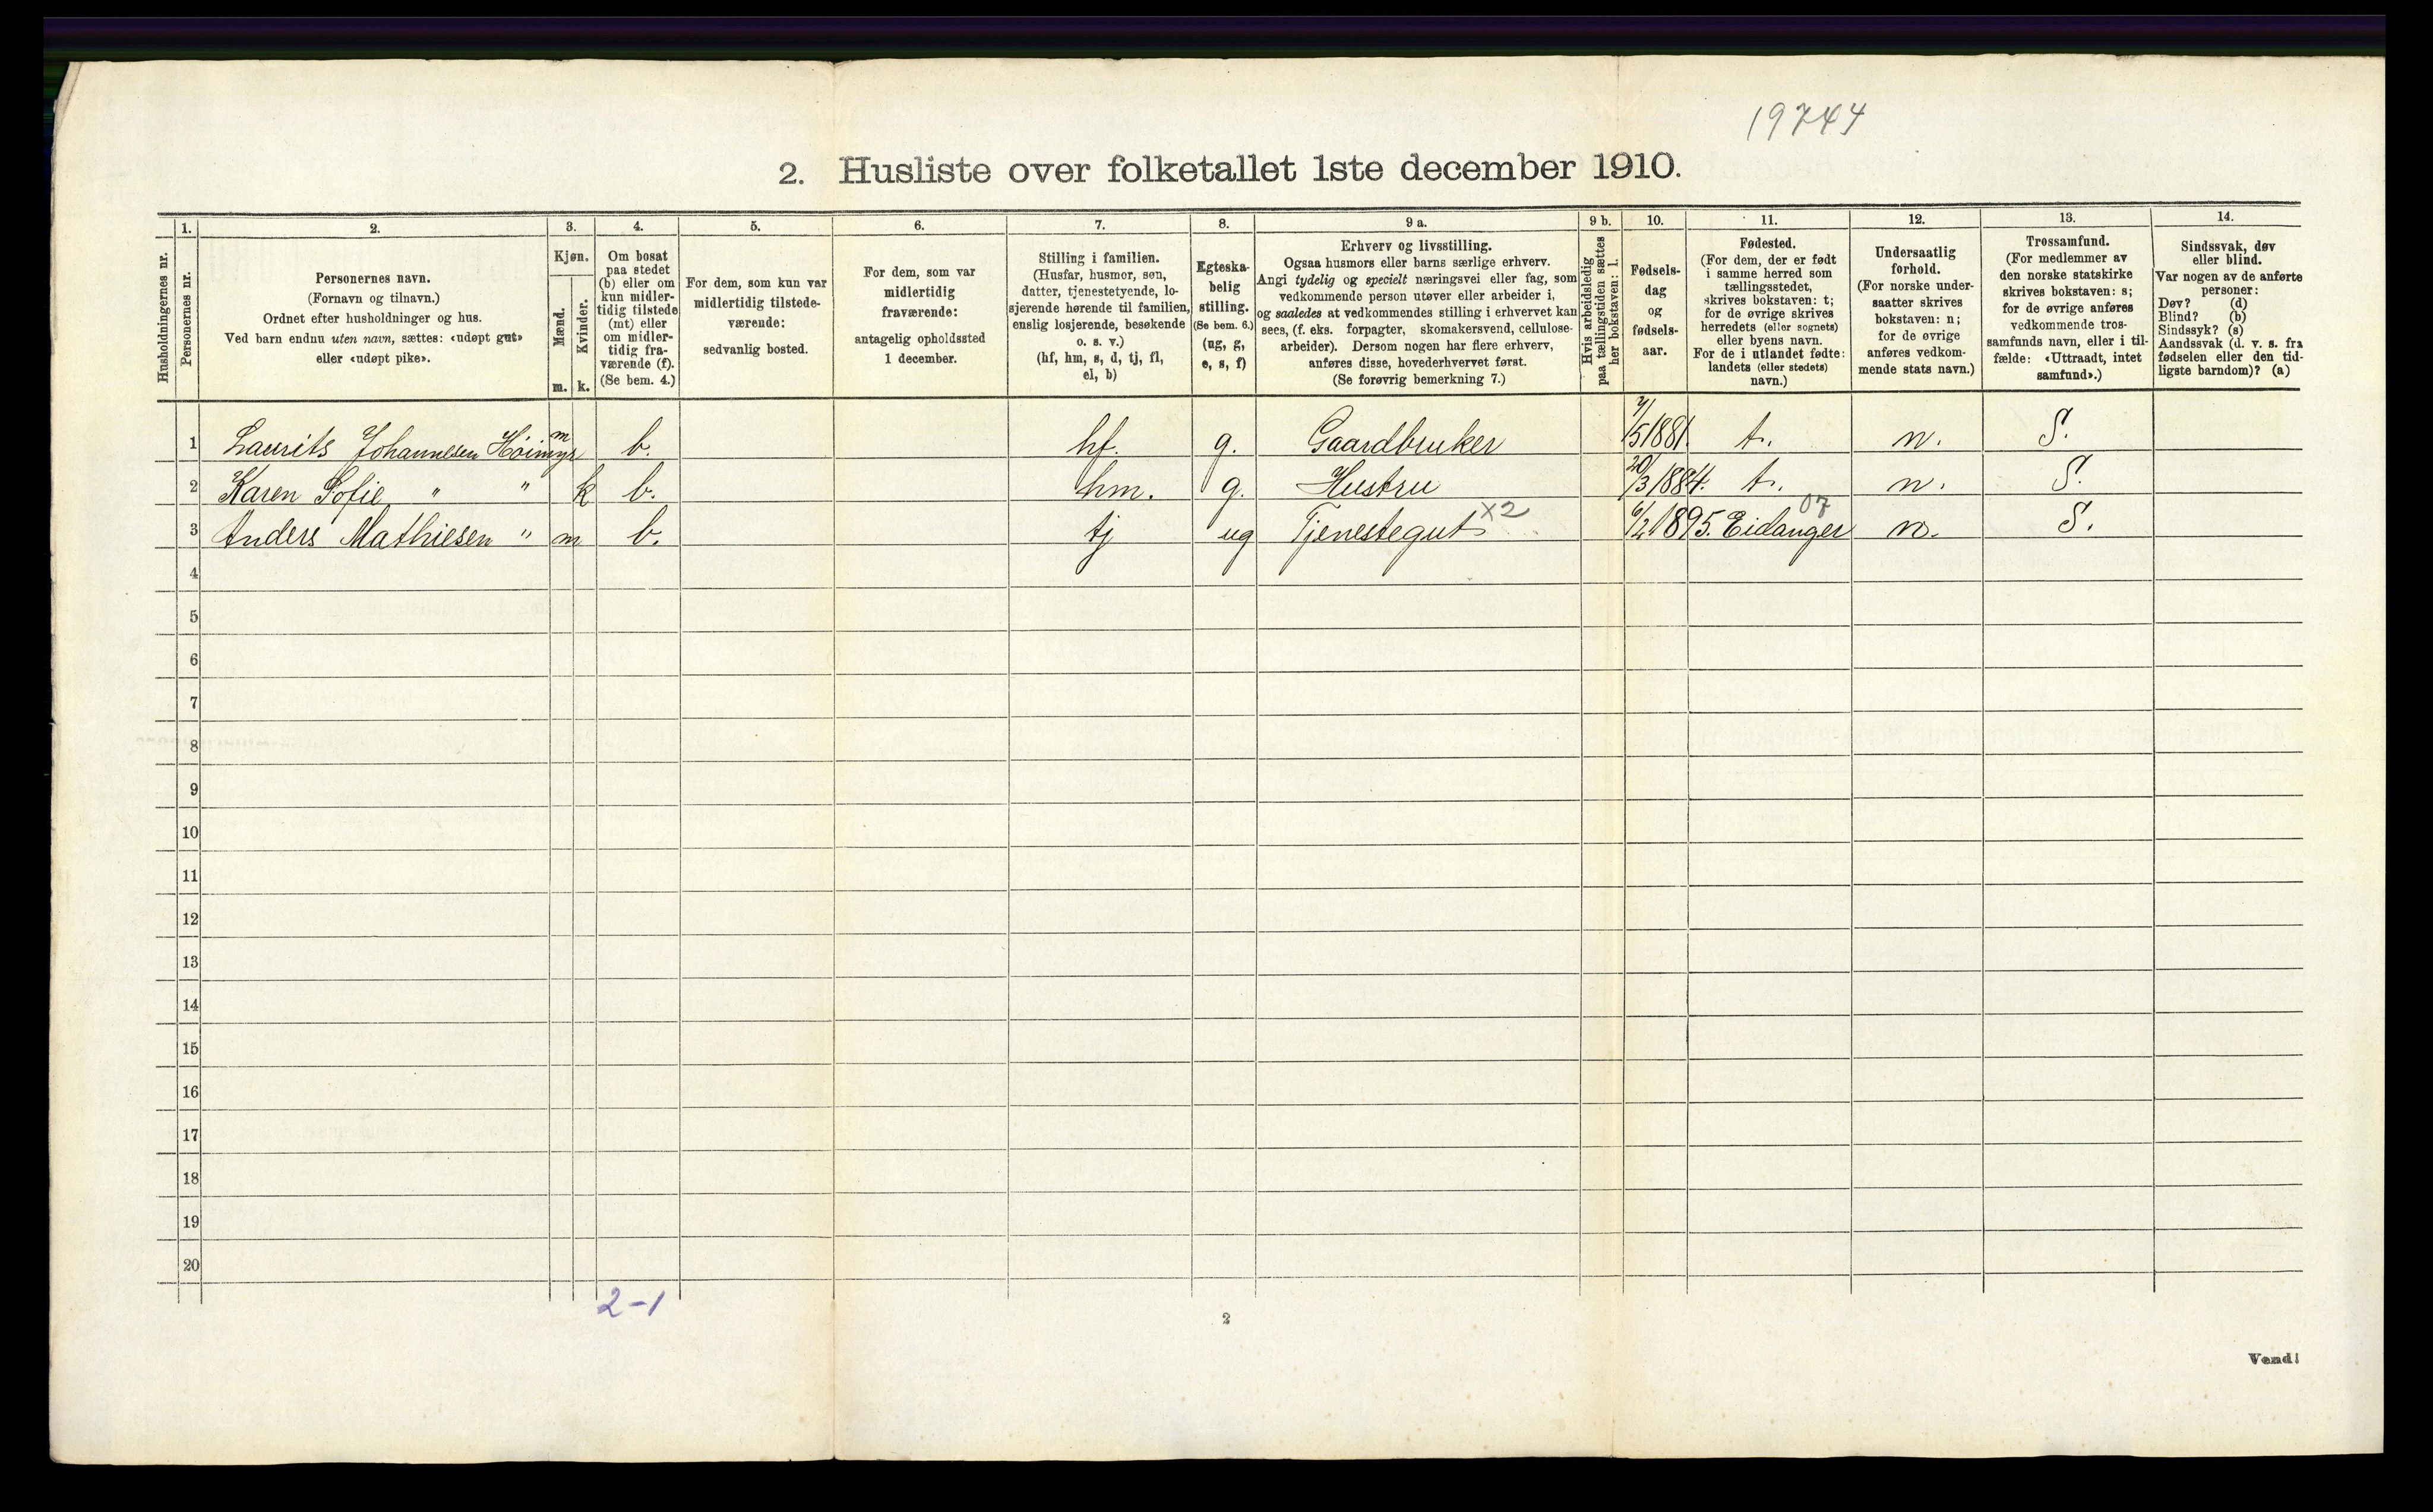 19744
2. Husliste over folketallet 1ste december 1910.
1. 2. 3. 4. 5. 6. 7. 8. 9 a. 9 b. 10. 11. 12. 13. 14.
Husholdningernes nr.
Personernes nr.
Personernes navn.
(Fornavn og tilnavn.)
Ordnet efter husholdninger og hus.
Ved barn endnu uten navn, sættes: «udøpt gut»
eller «udøpt pike».
Kjøn.
Mænd.
Kvinder.
m. k.
Om bosat
paa stedet
(b) eller om
kun midler-
tidig tilstede
(mt) eller
om midler-
tidig fra-
værende (f).
(Se bem. 4.)
For dem, som kun var
midlertidig tilstede-
værende:
sedvanlig bosted.
For dem, som var
midlertidig
fraværende:
antagelig opholdssted
1 december.
Stilling i familien.
(Husfar, husmor, søn,
datter, tjenestetyende, lo-
sjerende hørende til familien,
enslig losjerende, besøkende
o. s. v.)
(hf, hm, s, d, tj, fl,
el, b)
Egteska-
belig
stilling.
(Se bem. 6.)
(ug, g,
e, s, f)
Erhverv og livsstilling.
Ogsaa husmors eller barns særlige erhverv.
Angi tydelig og specielt næringsvei eller fag, som
vedkommende person utøver eller arbeider i,
og saaledes at vedkommendes stilling i erhvervet kan
sees, (f. eks. forpagter, skomakersvend, cellulose-
arbeider). Dersom nogen har flere erhverv,
anføres disse, hovederhvervet først.
(Se forøvrig bemerkning 7.)
Hvis arbeidsledig
paa tællingstiden sættes
her bokstaven: l.
Fødsels-
dag
og
fødsels-
aar.
Fødested.
(For dem, der er født
i samme herred som
tællingsstedet,
skrives bokstaven: t;
for de øvrige skrives
herredets (eller sognets)
eller byens navn.
For de i utlandet fødte:
landets (eller stedets)
navn.)
Undersaatlig
forhold.
(For norske under-
saatter skrives
bokstaven: n;
for de øvrige
anføres vedkom-
mende stats navn.)
Trossamfund.
(For medlemmer av
den norske statskirke
skrives bokstaven: s;
for de øvrige anføres
vedkommende tros-
samfunds navn, eller i til-
fælde: «Uttraadt, intet
samfund».)
Sindssvak, døv
eller blind.
Var nogen av de anførte
personer:
Døv? (d)
Blind? (b)
Sindssyk? (s)
Aandssvak (d. v. s. fra
fødselen eller den tid-
ligste barndom)? (a)
1 Laurits Johannesen Høimyr m b. hf. g. Gaardbruker 7/5 1881. t. n. S.
2 Karen Sofie " " k b. hm. g. Hustru 20/3 1884. t. n. S.
3 Anders Mathiesen " m b. tj ug Tjenestegut x2 6/2 1895. Eidanger 07 n. S.
4
5
6
7
8
9
10
11
12
13
14
15
16
17
18
19
20
2-1
2
Vend!